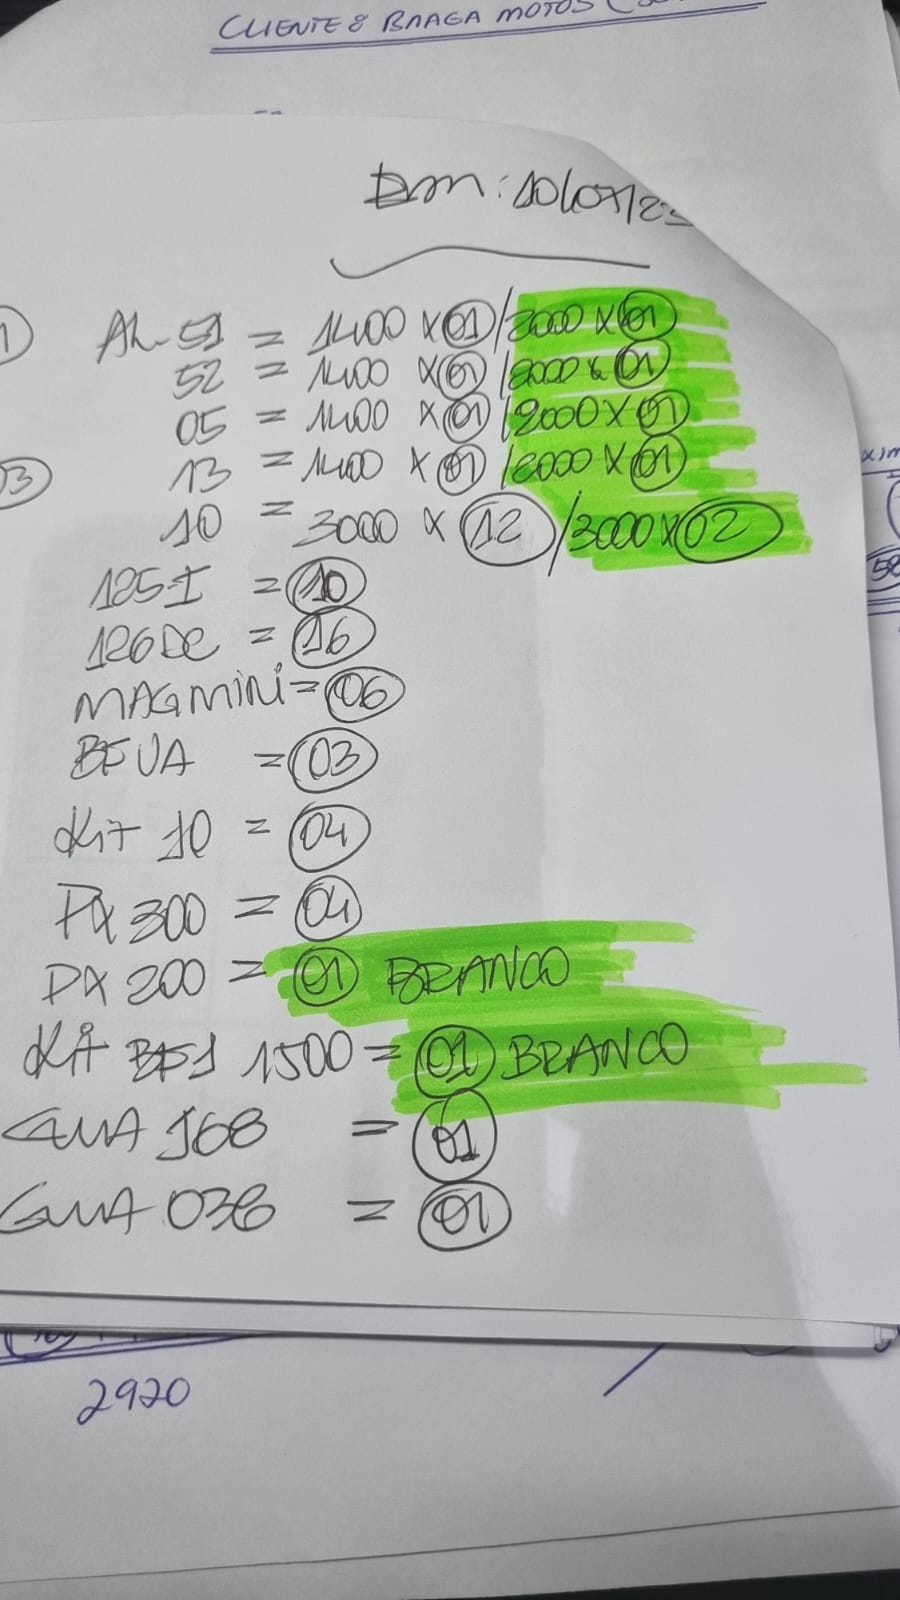 CLIENTE: BRAGA MOTOS
Dm: 10/07/23
AL-51 = 1400 x 01 / 2000 x 01
52 = 1400 x 01 / 2000 x 01
05 = 1400 x 01 / 2000 x 01
13 = 1400 x 01 / 2000 x 01
10 = 3000 x 12 / 3000 x 02
125I = 10
126DC = 16
MAGMINI = 06
BFUA = 03
Kit 10 = 04
PX 300 = 04
PX 200 = 01 BRANCO
Kit BF1 1500 = 01 BRANCO
GUA 168 = 01
GUA 038 = 01
2920